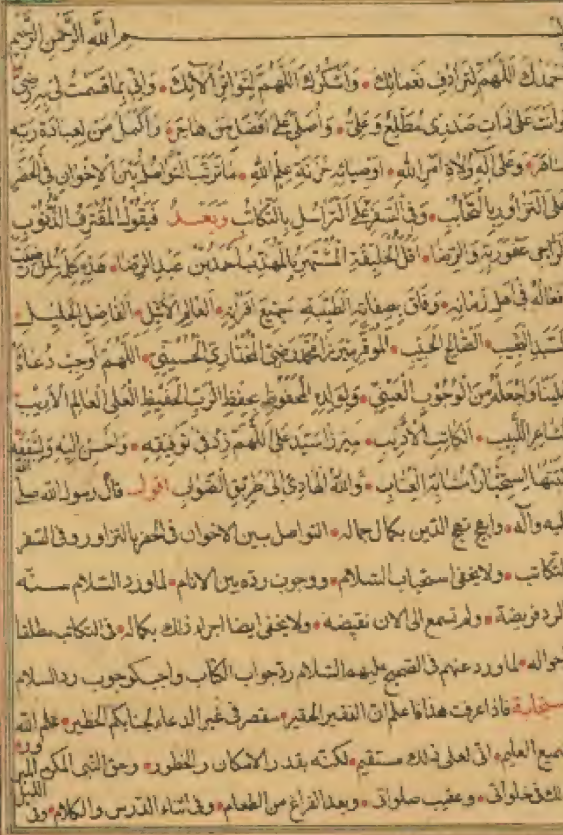 بسم الله الرحمن الرحيم
احمدك اللهم لترادف نعمائك واشكرك اللهم لتواتر الآئك واني بما قسمت لي
وانت على ذات صدري مطلع وعلي واصلي على افضل من هاجر واكمل من لعبادة ربه
وعلى آله ولاة امر الله اوصيائه خزنة علم الله ما ترتب التواصل بين الاخوان في الحضر
على التزاور بالتحابب وفي السفر على التراسل بالتكاتب وبعد فيقول المقترف الذنوب
الراجي عفو ربه والرضا اقل الخليقة المشتهر بالمهذب احمد بن عبد الرضا هذه
فعاله في اهل زمانه وفاق بصفاته الطيبة جميع اقرانه العالم الاثيل الفاضل الجليل
السيد النقيب الصالح الموقر ميرزا محمد رضي المختاري الحسيني اللهم اوجب دعاءنا
علينا واجعله من الوجوب العيني ولولده المحفوظ بحفظ الرب الحفيظ العلي العالم الاريب
الشاعر اللبيب الكاتب الاديب ميرزا سيد علي اللهم زد في توفيقه واحسن اليه
والله الهادي الى طريق الصواب اقول قال رسول الله صلى الله
عليه وآله وابهج نهج الدين بكمال جماله التواصل بين الاخوان في الحضر بالتزاور وفي السفر
التكاتب ولا يخفى استحباب السلام ووجوب رده بين الانام لما ورد السلام سنة
الرد فريضة ولم نسمع الى الان نقيضه ولا يخفى ايضا اجراء ذلك بكماله في التكاتب مطلقا
احواله لما ورد عنهم في الصحيح عليهم السلام رد جواب الكتاب واجب كوجوب رد السلام
فاذا عرفت هذا فاعلم ان الفقير الحقير مقصر في غير الدعاء لجنابكم الخطير علم الله
سميع العليم اني لعلى ذلك مستقيم لكنه بقدر الامكان والخطور وحق النبي المكي
في خلواتي وعقيب صلواتي وبعد الفراغ من الطعام وفي اثناء الدرس والكلام وفي